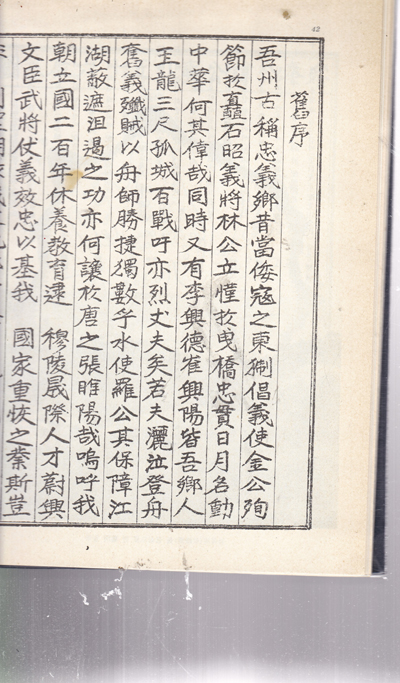 42
舊序
吾州古稱忠義鄉昔當倭寇之東倡義使金公殉
節於矗石昭義將林公立慬於曳橋忠貫日月名動
中華何其偉哉同時又有李興德崔興陽皆吾鄉人
玉龍三尺孤城石戰吁亦烈丈夫矣若夫灑泣登舟
奮義殲賊以舟師勝捷獨數乎水使羅公其保障江
湖蔽遮沮遏之功亦何讓於唐之張睢陽哉嗚呼我
朝立國二百年休養敎育逮 穆陵晟際人才蔚興
文臣武將仗義效忠以基我 國家重恢之業斯豈